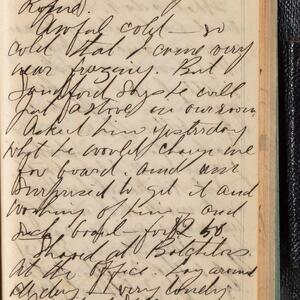 round).
Awful cold — so
cold that I came very
near freezing. But
Sandford says he will
put a stove in our room
asked him yesterday
what he would charge me
for board. and am
surprised to get it and
washing of him, and
board — for $2.50
Stayed at
At the office. Lay around
all day very lonely